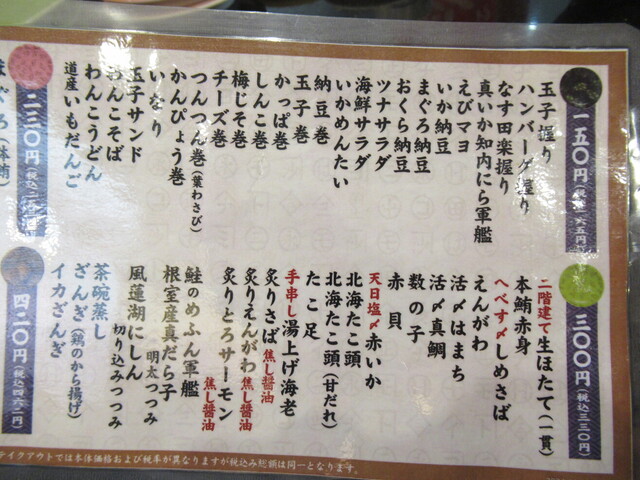 一五〇円(税込一六五円)
玉子握り
ハンバーグ握り
なす田楽握り
真いか知内にら軍艦
えびマヨ
いか納豆
まぐろ納豆
おくら納豆
ツナサラダ
海鮮サラダ
いかめんたい
納豆巻
玉子巻
かっぱ巻
しんこ巻
梅じそ巻
チーズ巻
つんつん巻(葉わさび)
かんぴょう巻
いなり
玉子サンド
わんこそば
わんこうどん
道産いもだんご
二三〇円(税込二五三円)
まぐろ
三〇〇円(税込三三〇円)
二階建て生ほたて(一貫)
本鮪赤身
へべす〆しめさば
えんがわ
活〆はまち
活〆真鯛
数の子
赤貝
天日塩〆赤いか
北海たこ頭
北海たこ頭(甘だれ)
たこ足
手串し湯上げ海老
炙りさば焦し醤油
炙りえんがわ焦し醤油
炙りとろサーモン焦し醤油
鮭のめふん軍艦
根室産真だら子
明太つつみ
風蓮湖にしん
切り込みつつみ
四二〇円(税込四六二円)
茶碗蒸し
ざんぎ(鶏のから揚げ)
イカざんぎ
テイクアウトでは本体価格および税率が異なりますが税込み総額は同一となります。